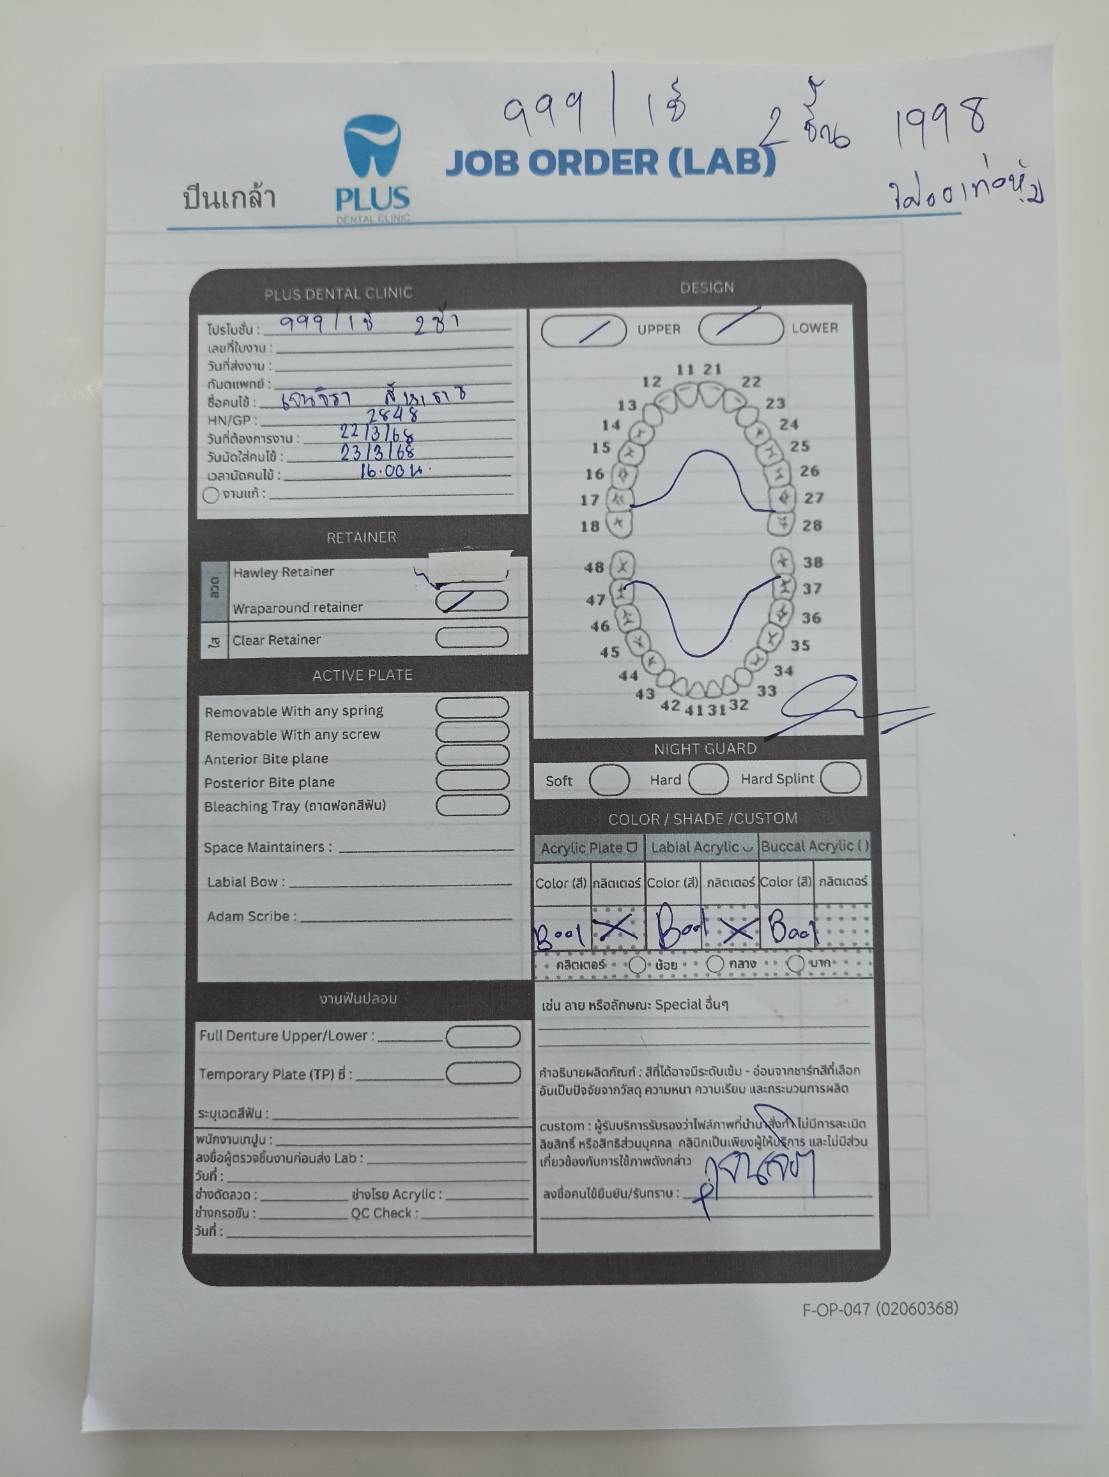 999 / 1ซี่ 2 ชิ้น 1998
JOB ORDER (LAB)
ปิ่นเกล้า
PLUS
DENTAL CLINIC
PLUS DENTAL CLINIC
โปรโมชั่น : 999 / 1ซี่
เลขที่ใบงาน :
วันที่ส่งงาน :
ทันตแพทย์ :
ชื่อคนไข้ : เจนจิรา
HN/GP : 2848
วันที่ต้องการงาน : 22/3/68
วันนัดใส่คนไข้ : 23/3/68
เวลานัดคนไข้ : 16.00 น.
งานแก้ :
RETAINER
ลวด
Hawley Retainer
Wraparound retainer
ใส
Clear Retainer
ACTIVE PLATE
Removable With any spring
Removable With any screw
Anterior Bite plane
Posterior Bite plane
Bleaching Tray (ถาดฟอกสีฟัน)
Space Maintainers :
Labial Bow :
Adam Scribe :
งานฟันปลอม
Full Denture Upper/Lower :
Temporary Plate (TP) ซี่ :
ระบุเฉดสีฟัน :
พนักงานเทปูน :
ลงชื่อผู้ตรวจชิ้นงานก่อนส่ง Lab :
วันที่ :
ช่างดัดลวด : ช่างโรย Acrylic :
ช่างกรอขัด : QC Check :
วันที่ :
DESIGN
UPPER LOWER
11 21
12 22
13 23
14 24
15 25
16 26
17 27
18 28
48 38
47 37
46 36
45 35
44 34
43 33
42 41 31 32
NIGHT GUARD
Soft Hard Hard Splint
COLOR / SHADE /CUSTOM
Acrylic Plate Labial Acrylic Buccal Acrylic ( )
Color (สี) กลิตเตอร์ Color (สี) กลิตเตอร์ Color (สี) กลิตเตอร์
B001 X B001 X B001
กลิตเตอร์ น้อย กลาง มาก
เช่น ลาย หรือลักษณะ Special อื่นๆ
คำอธิบายผลิตภัณฑ์ : สีที่ได้อาจมีระดับเข้ม - อ่อนจากชาร์ทสีที่เลือก
อันเป็นปัจจัยจากวัสดุ ความหนา ความเรียบ และกระบวนการผลิต
custom : ผู้รับบริการรับรองว่าไฟล์ภาพที่นำมาสั่งทำ ไม่มีการละเมิด
ลิขสิทธิ์ หรือสิทธิส่วนบุคคล คลินิกเป็นเพียงผู้ให้บริการ และไม่มีส่วน
เกี่ยวข้องกับการใช้ภาพดังกล่าว
ลงชื่อคนไข้ยืนยัน/รับทราบ :
F-OP-047 (02060368)